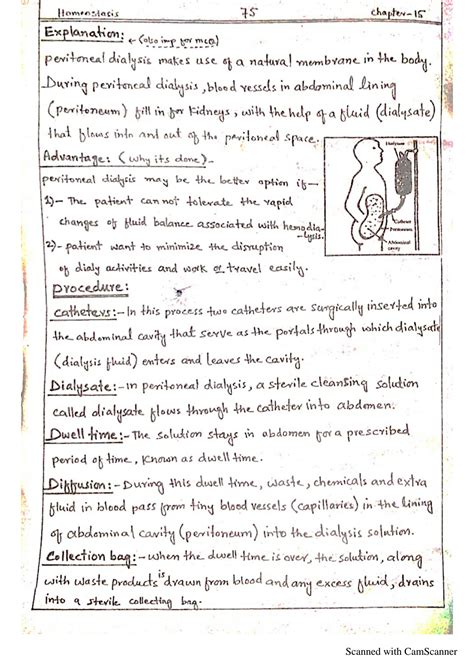 Homeostasis 75 Chapter-15
Explanation: ← (also imp for mcq)
peritoneal dialysis makes use of a natural membrane in the body.
During peritoneal dialysis, blood vessels in abdominal lining
(peritoneum) fill in for kidneys, with the help of a fluid (dialysate)
that flows into and out of the peritoneal space.
Advantage: (why its done)-
peritoneal dialysis may be the better option if-
1)- The patient can not tolerate the rapid
changes of fluid balance associated with hemodia-
-lysis.
2)- patient want to minimize the disruption
of dialy activities and work or travel easily.
Dialysate
Catheter
Peritoneum
Abdominal
cavity
Procedure:
Catheters:- In this process two catheters are surgically inserted into
the abdominal cavity that serve as the portals through which dialysate
(dialysis fluid) enters and leaves the cavity.
Dialysate:- in peritoneal dialysis, a sterile cleansing solution
called dialysate flows through the catheter into abdomen.
Dwell time:- The solution stays in abdomen for a prescribed
period of time, known as dwell time.
Diffusion:- During this dwell time, waste, chemicals and extra
fluid in blood pass from tiny blood vessels (capillaries) in the lining
of abdominal cavity (peritoneum) into the dialysis solution.
Collection bag:- when the dwell time is over, the solution, along
with waste products is drawn from blood and any excess fluid, drains
into a sterile collecting bag.
Scanned with CamScanner